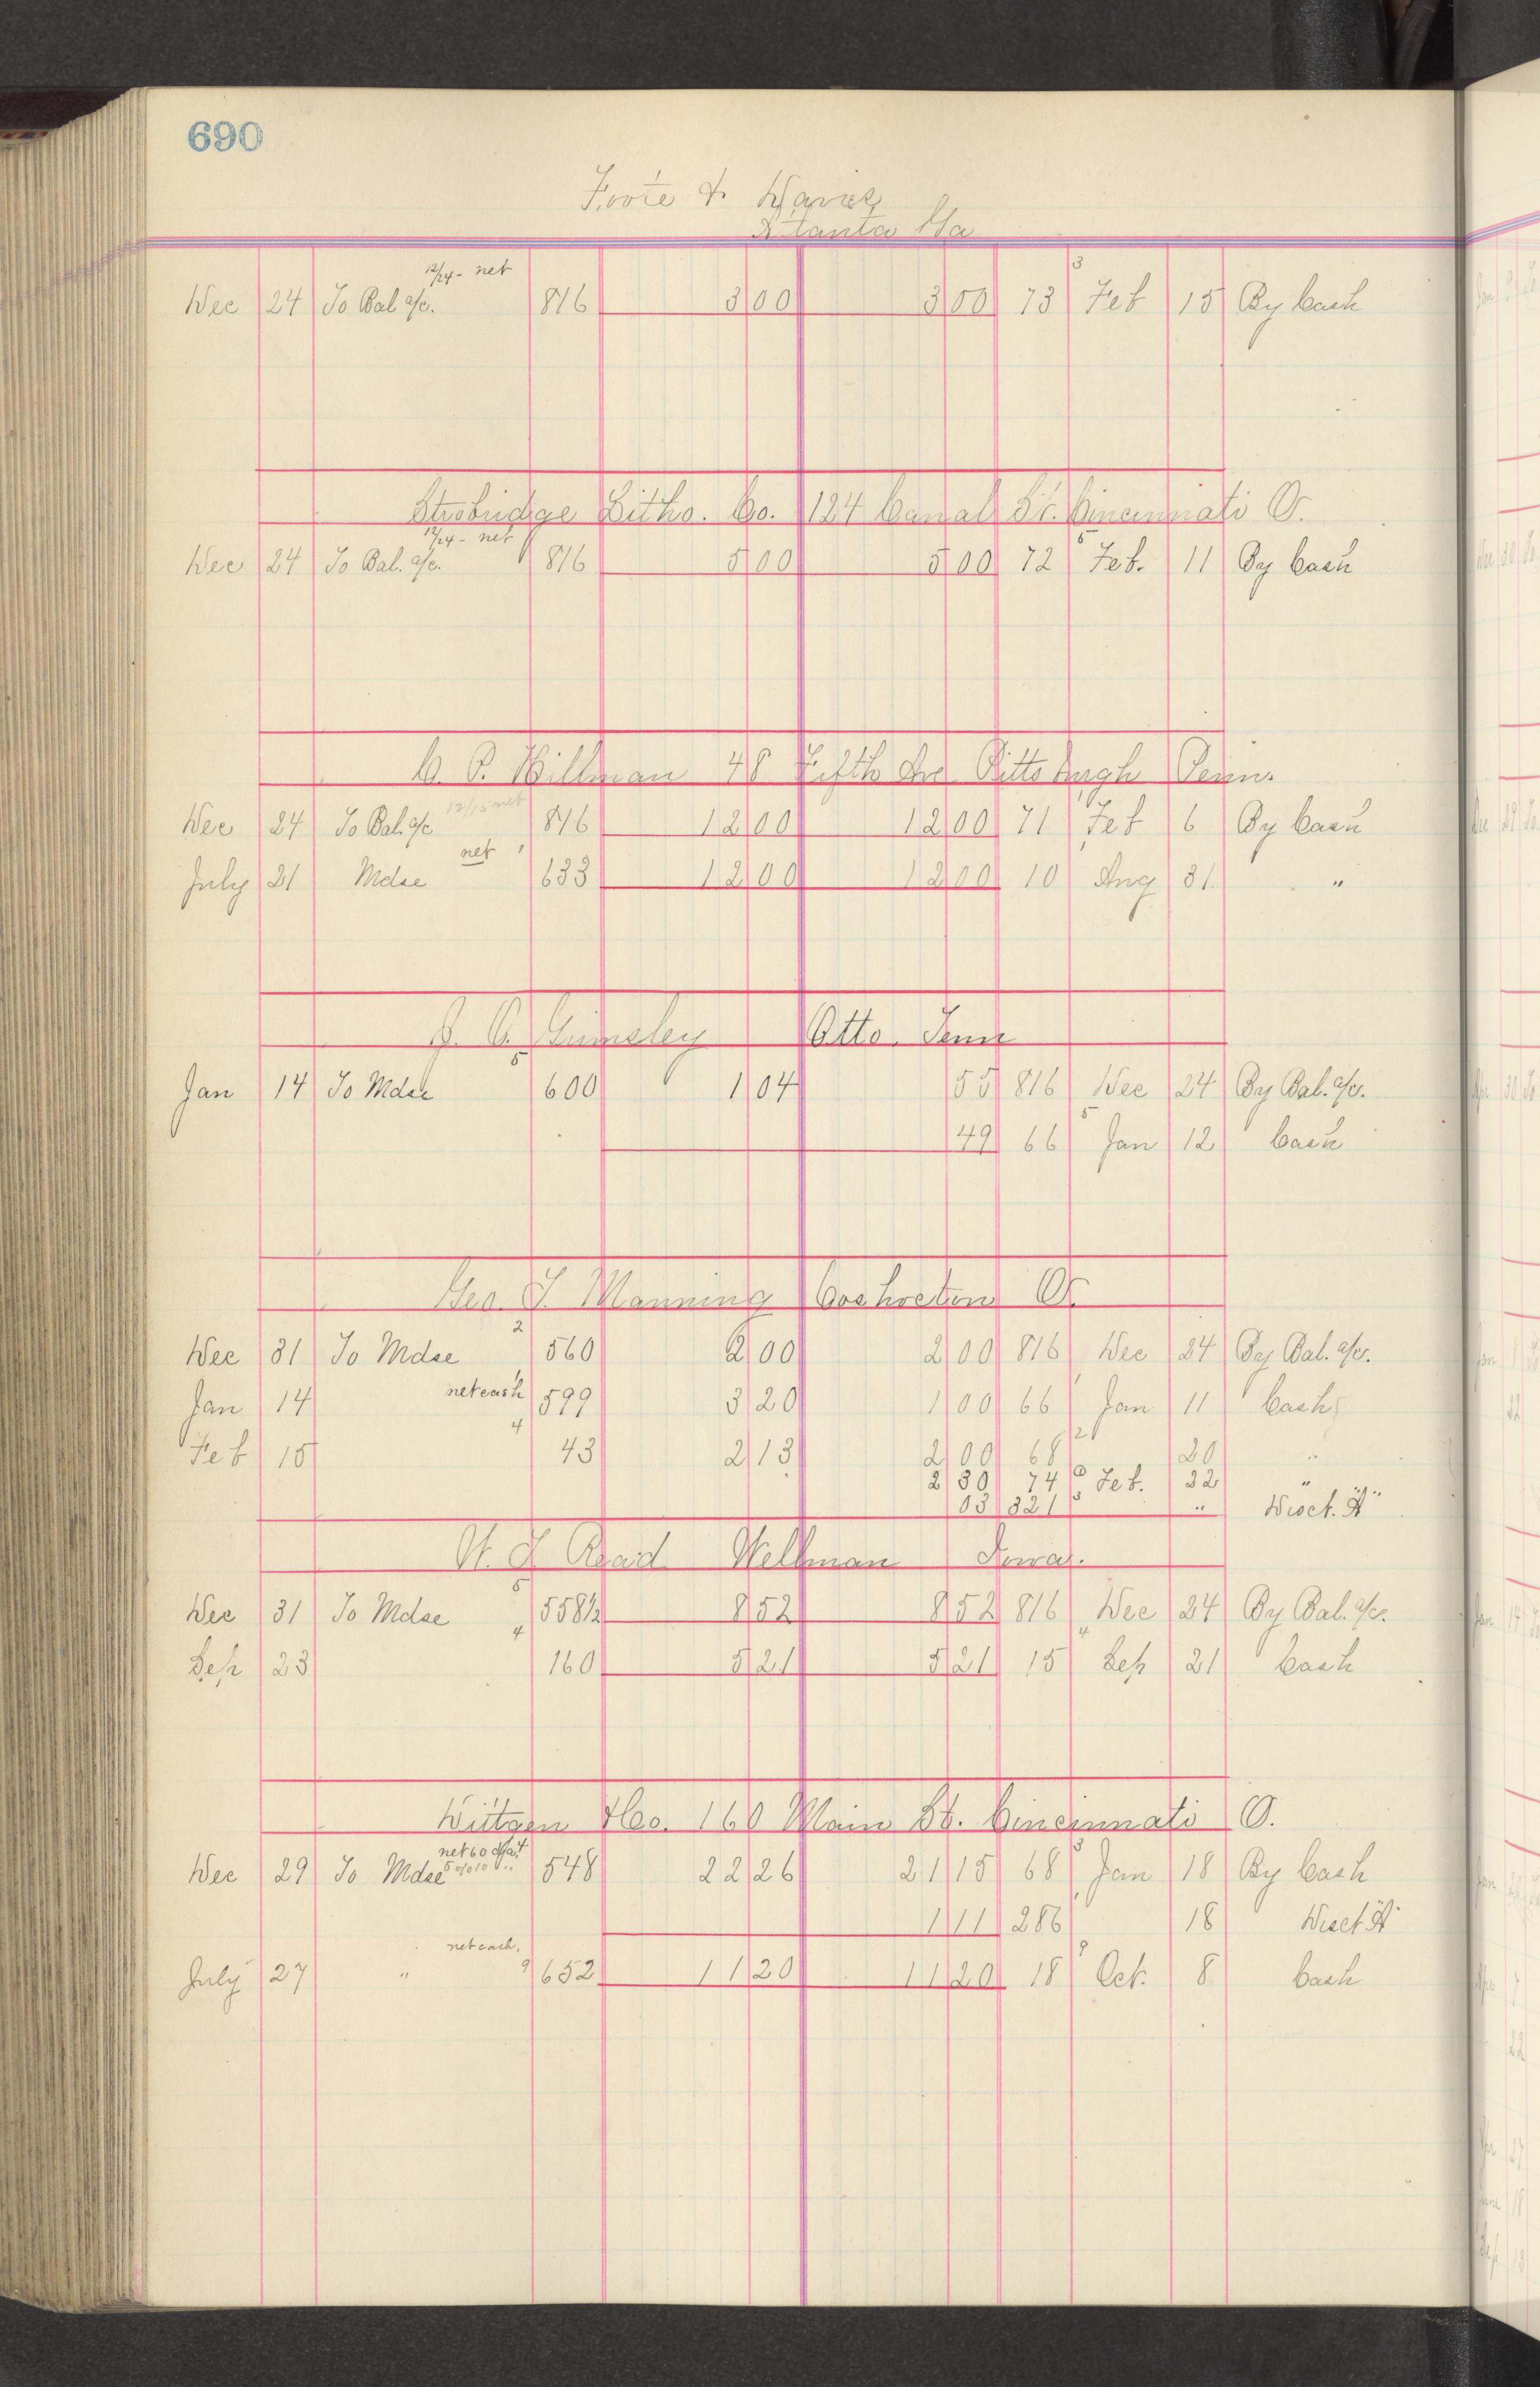 690
Foote & Davies
Atlanta Ga
12/24 - net
Dec 24 To Bal a/c. 816 3 00 3 00 73 3 Feb 15 By Cash
Strobridge Litho. Co. 124 Canal St. Cincinnati O.
12/24 - net
Dec 24 To Bal. a/c. 816 5 00 5 00 72 5 Feb. 11 By Cash
48 Fifth Ave Pittsburgh Penn.
12/15 net
Dec 24 To Bal. a/c 816 12 00 12 00 71 Feb 6 By Cash
net
July 21 Mdse 633 12 00 12 00 10 Aug 31 "
Otto Tenn
Jan 14 To Mdse 5 600 1 04 55 816 Dec 24 By Bal. a/c.
49 66 5 Jan 12 Cash
Geo. T. Manning Coshocton O.
Dec 31 To Mdse 2 560 2 00 2 00 816 Dec 24 By Bal. a/c.
Jan 14 net cash 599 3 20 1 00 66 Jan 11 Cash
Feb 15 4 43 2 13 2 00 68 2 20 "
2 30 74 Feb. 22 "
03 321 3 " Disct. "A"
Read Wellman Iowa.
Dec 31 To Mdse 5 558½ 8 52 8 52 816 Dec 24 By Bal. a/c.
Sep 23 4 160 5 21 5 21 15 4 Sep 21 Cash
& Co. 160 Main St. Cincinnati O.
net 60
Dec 29 To Mdse 548 22 26 21 15 68 3 Jan 18 By Cash
1 11 286 18 Disct "A"
net cash.
July 27 " 9 652 11 20 11 20 18 9 Oct. 8 Cash